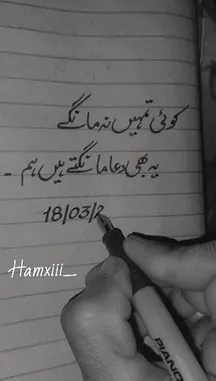 کوئی تمہیں نہ مانگے
یہ بھی دعا مانگتے ہیں ہم ۔
18/03/2
Hamxiii_
PIANO